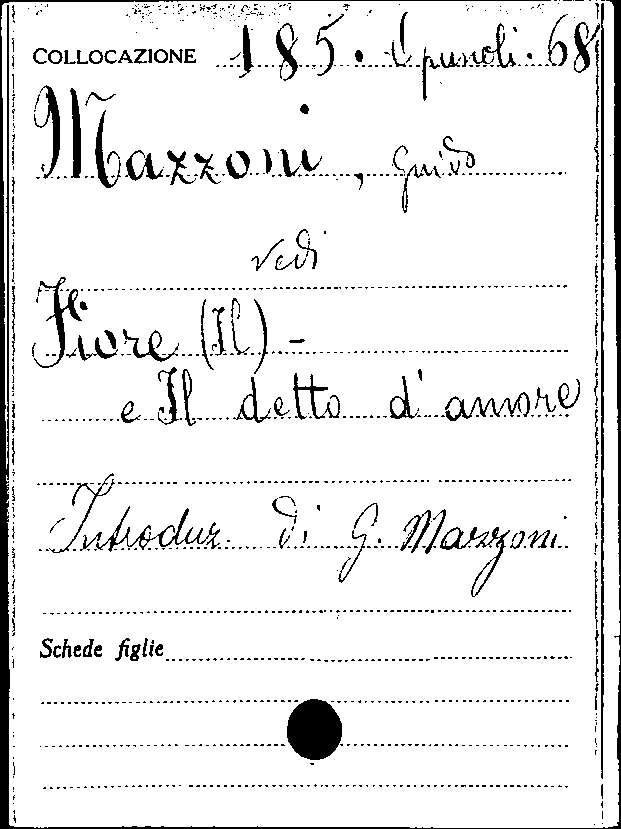 COLLOCAZIONE 185. Opuscoli. 68
Mazzoni, Guido
vedi
Fiore (Il) -
e Il detto d'amore
Introduz. di G. Mazzoni
Schede figlie